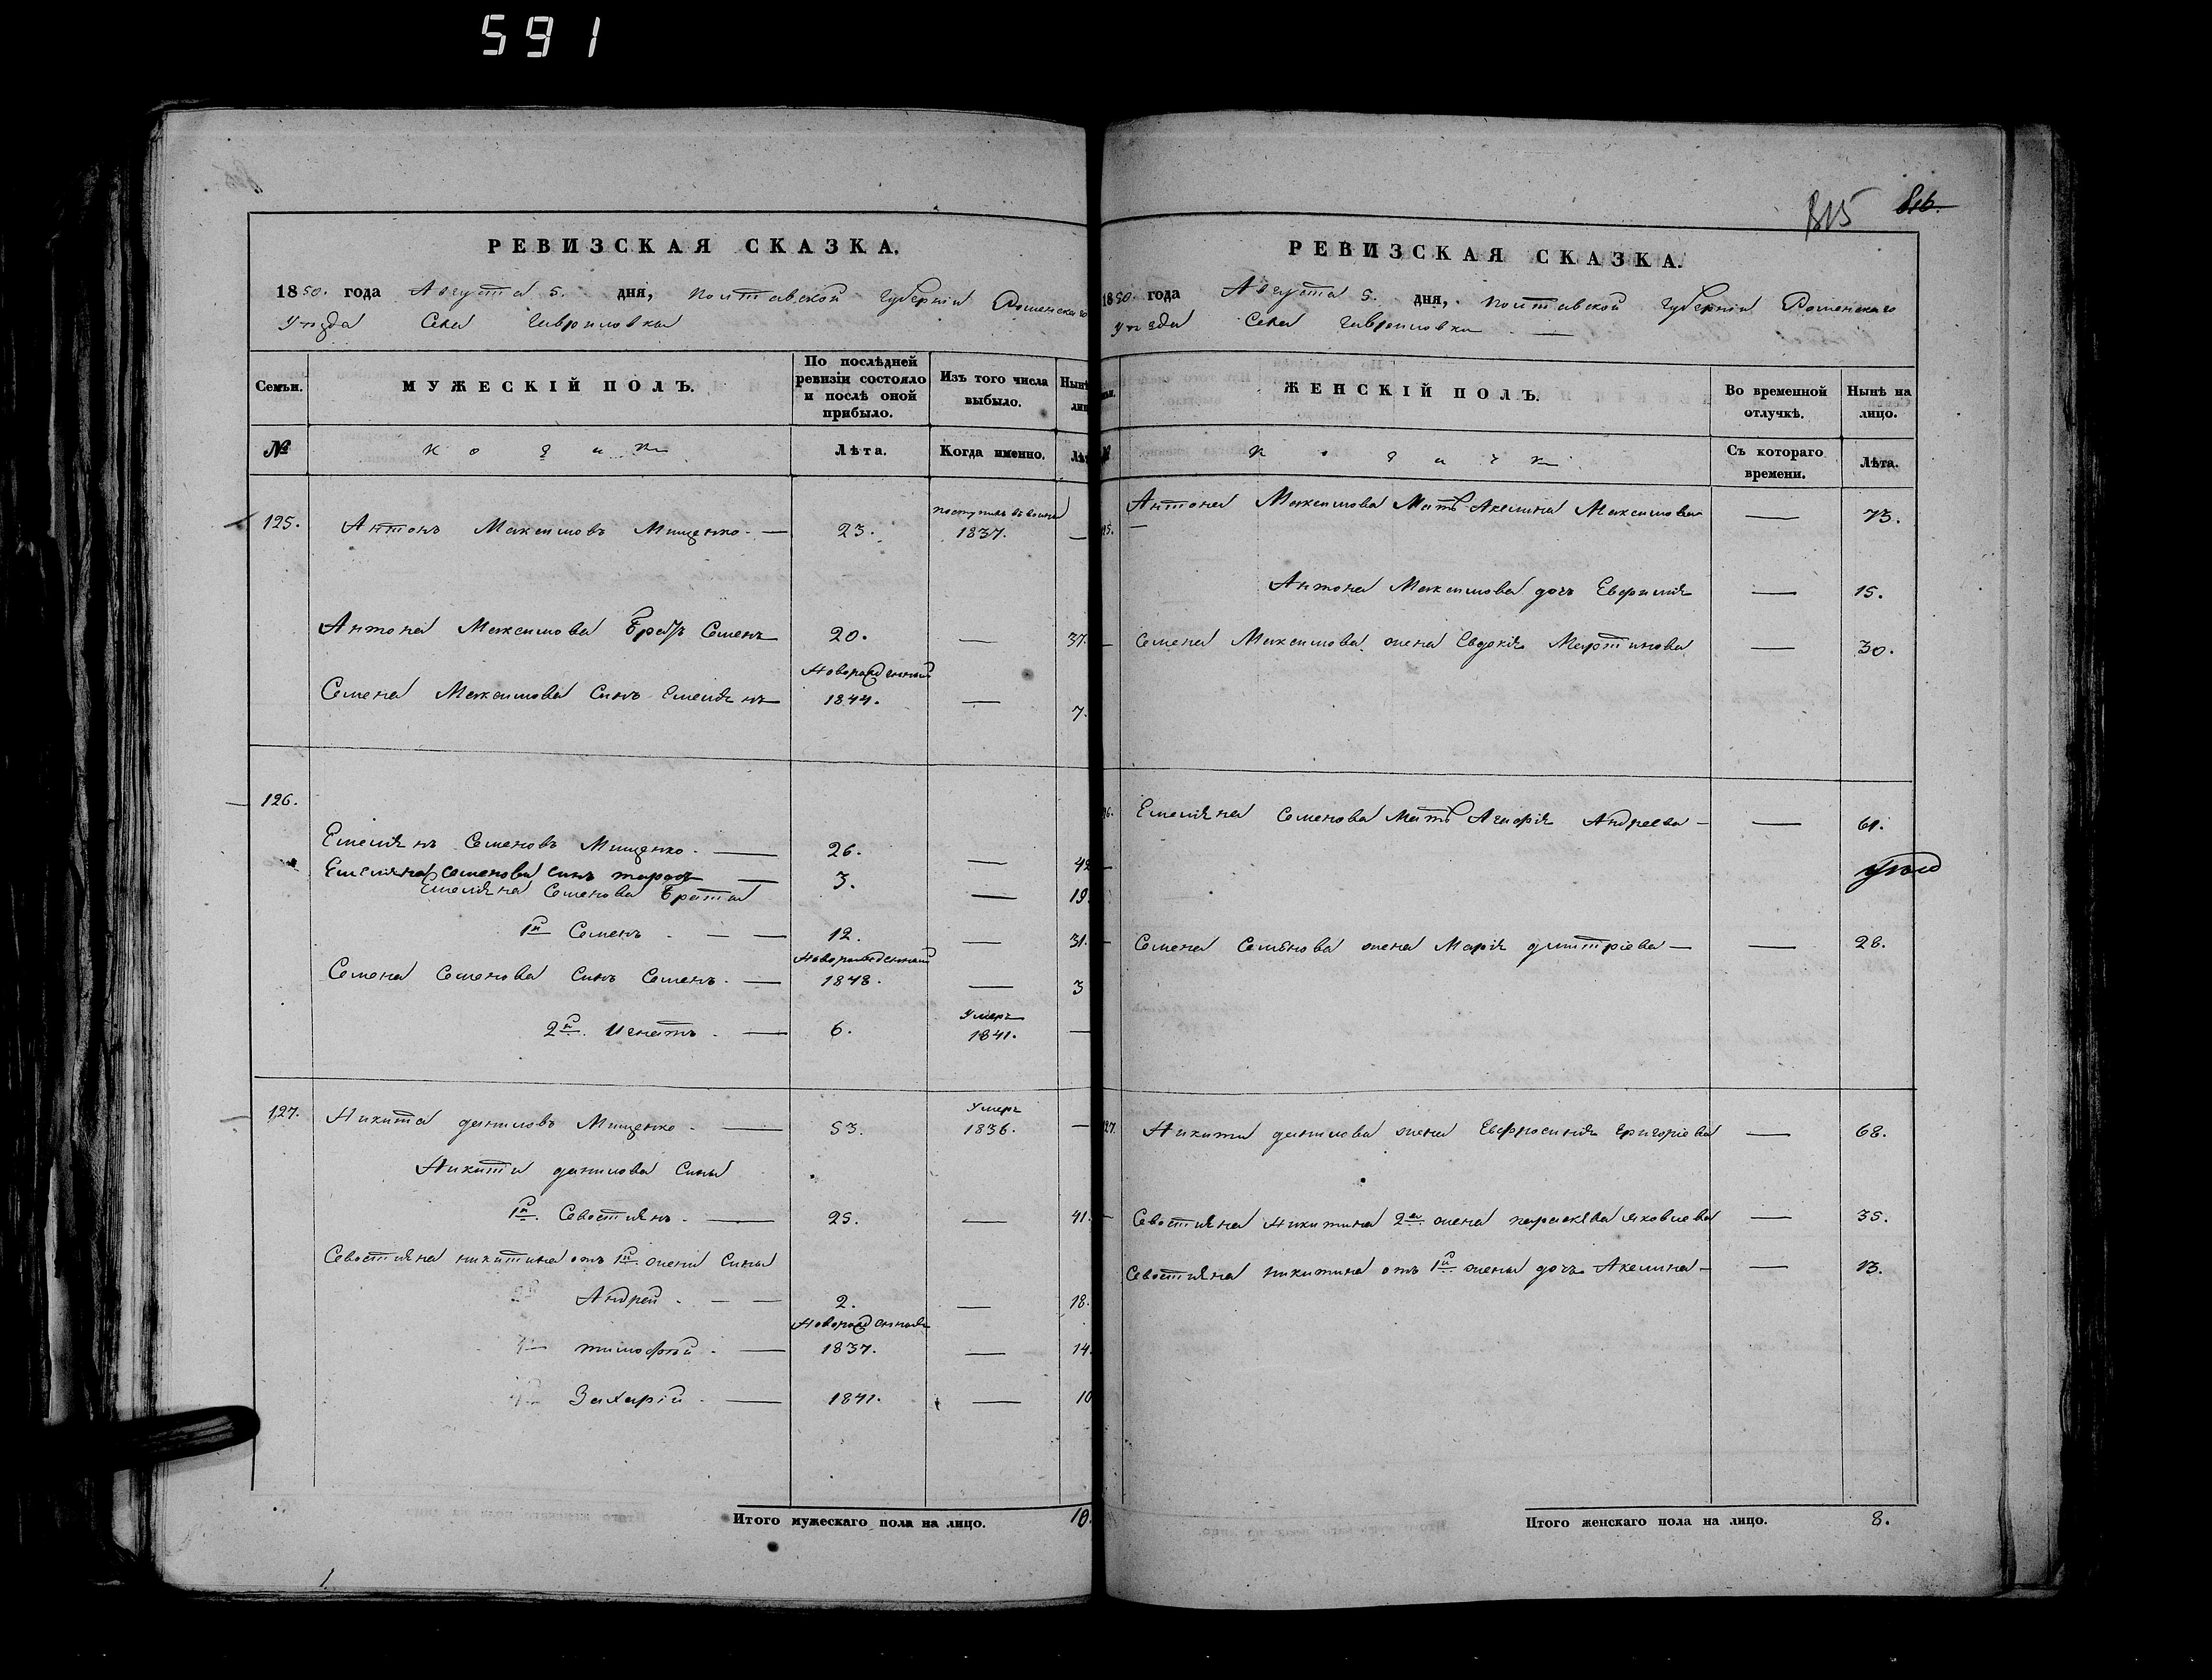 591
РЕВИЗСКАЯ СКАЗКА.
1850. года Августа 5. дня, Полтавской Губернiи Роменскаго
Уѣзда Села Гавриловки
Семьи. МУЖЕСКIЙ ПОЛЪ. По послѣдней ревизiи состояло и послѣ оной прибыло. Изъ того числа выбыло. Нынѣ
№ Лѣта. Когда именно.
125. Антонъ Максимовъ Мищенко. — 23. поступилъ въ 1837. —
Антона Максимова Братъ Семенъ 20. — 37.
Семена Максимова Синъ Емелiянъ Новорожденный 1844. — 7.
126.
Емелiянъ Семеновъ Мищенко. — 26. — 42
Емелiяна Семенова синъ тарасъ — 3. — 19
Емелiяна Семенова Братья
1й Семенъ. — — 12. — 31.
Семена Семенова Синъ Семенъ. — Новорожденный 1848. — 3
2й. Игнатъ. — 6. Умеръ 1841. —
127. Никита даниловъ Мищенко. — 53. Умеръ 1836. —
Никиты данилова Сины
1й. Севостiянъ. — 25. — 41.
Севостiяна никитина отъ 1й жены Сины
Андрей. — — 2. — 18.
тимофѣй. — Новорожденные 1837. — 14.
Захарiй. — 1841. — 10
Итого мужескаго пола на лицо. 10.
815 816.
РЕВИЗСКАЯ СКАЗКА.
1850. года Августа 5. дня, Полтавской Губернiи Роменскаго
Уѣзда Села Гавриловки —
ЖЕНСКIЙ ПОЛЪ. Во временной отлучкѣ. Нынѣ на лицо.
Съ котораго времени. Лѣта.
Антона Максимова Мать Акелина Максимова — 73.
Антона Максимова дочъ Евфимiя — 15.
Семена Максимова жена Евдокiя Мартинова — 30.
Емелiяна Семенова Мать Агафiя Андреева — — 61.
Семена Семѣнова жена Марiя димитрiева — — 28.
127. Никиты данилова жена Евфросинiя Григорiева — 68.
Севостiяна Никитина 2я жена параскева яковлева — 35.
Севостiяна Никитина отъ 1й жены дочъ Акелина — — 13.
Итого женскаго пола на лицо. 8.